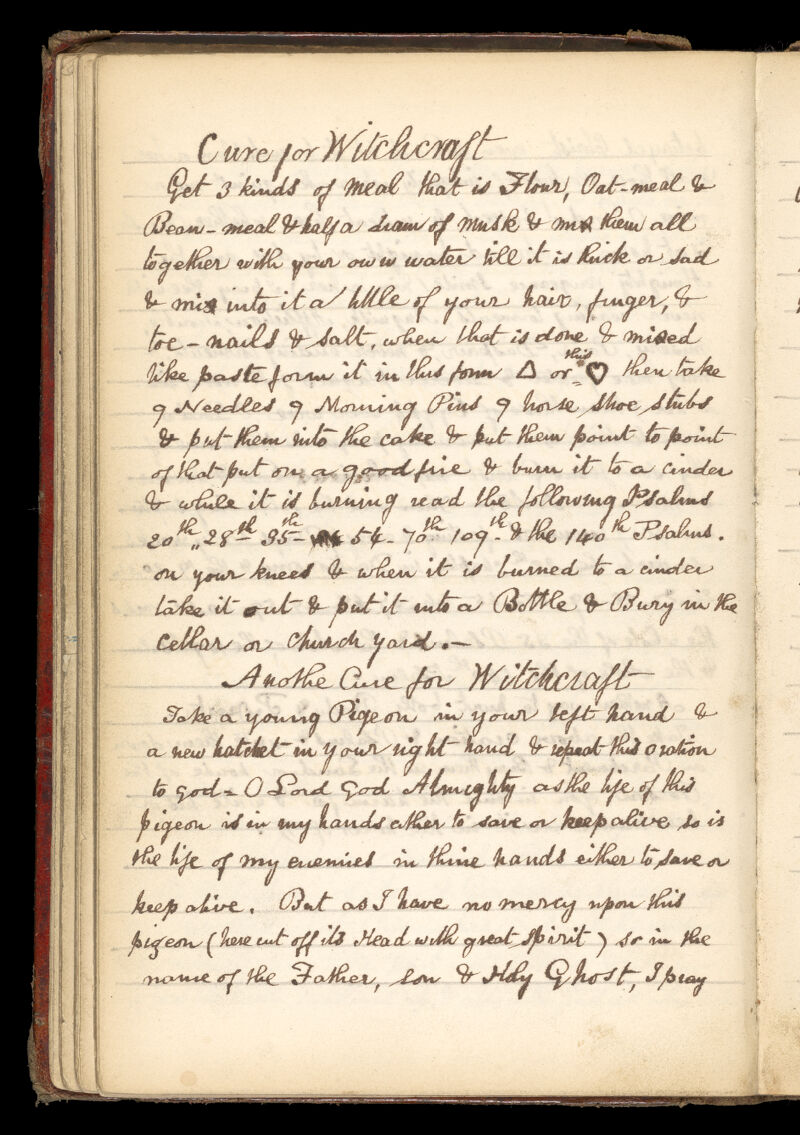 Cure for Witchcraft
Get 3 kinds of meal that is Flour, Oat-meal &
Bean-meal & half a dram of musk & mix them all
together with your own water till it is thick or sad
& mix into it a little of your hair, finger, &
toe-nails & salt, when that is done & mixed
like paste form it in this form △ or this ♡ then take
9 Needles 9 Morning Pins 9 horse shoe stubs
& put them into the cake & put them point to point
of that put on a good fire & burn it to a cinder
& while it is burning read the following Psalms
20th „ 28th 35th - 54 - 70th 109th - & the 140th Psalms.
on your knees & when it is burned to a cinder
take it out & put it into a Bottle & Bury in the
cellar or church yard. —
Anothe Cure for Witchcraft
Take a young Pigeon in your left hand &
a new hatchet in your right hand & repeat this oration
to god = O Lord God Almighty as the life of this
pigeon is in my hands ether to save or keep alive so is
the life of my enemies in thine hands either to save or
keep alive. But as I have no mercy upon this
pigeon (here cut off its Head with great spirit) so in the
name of the Father, son & Holy Ghost, I pray